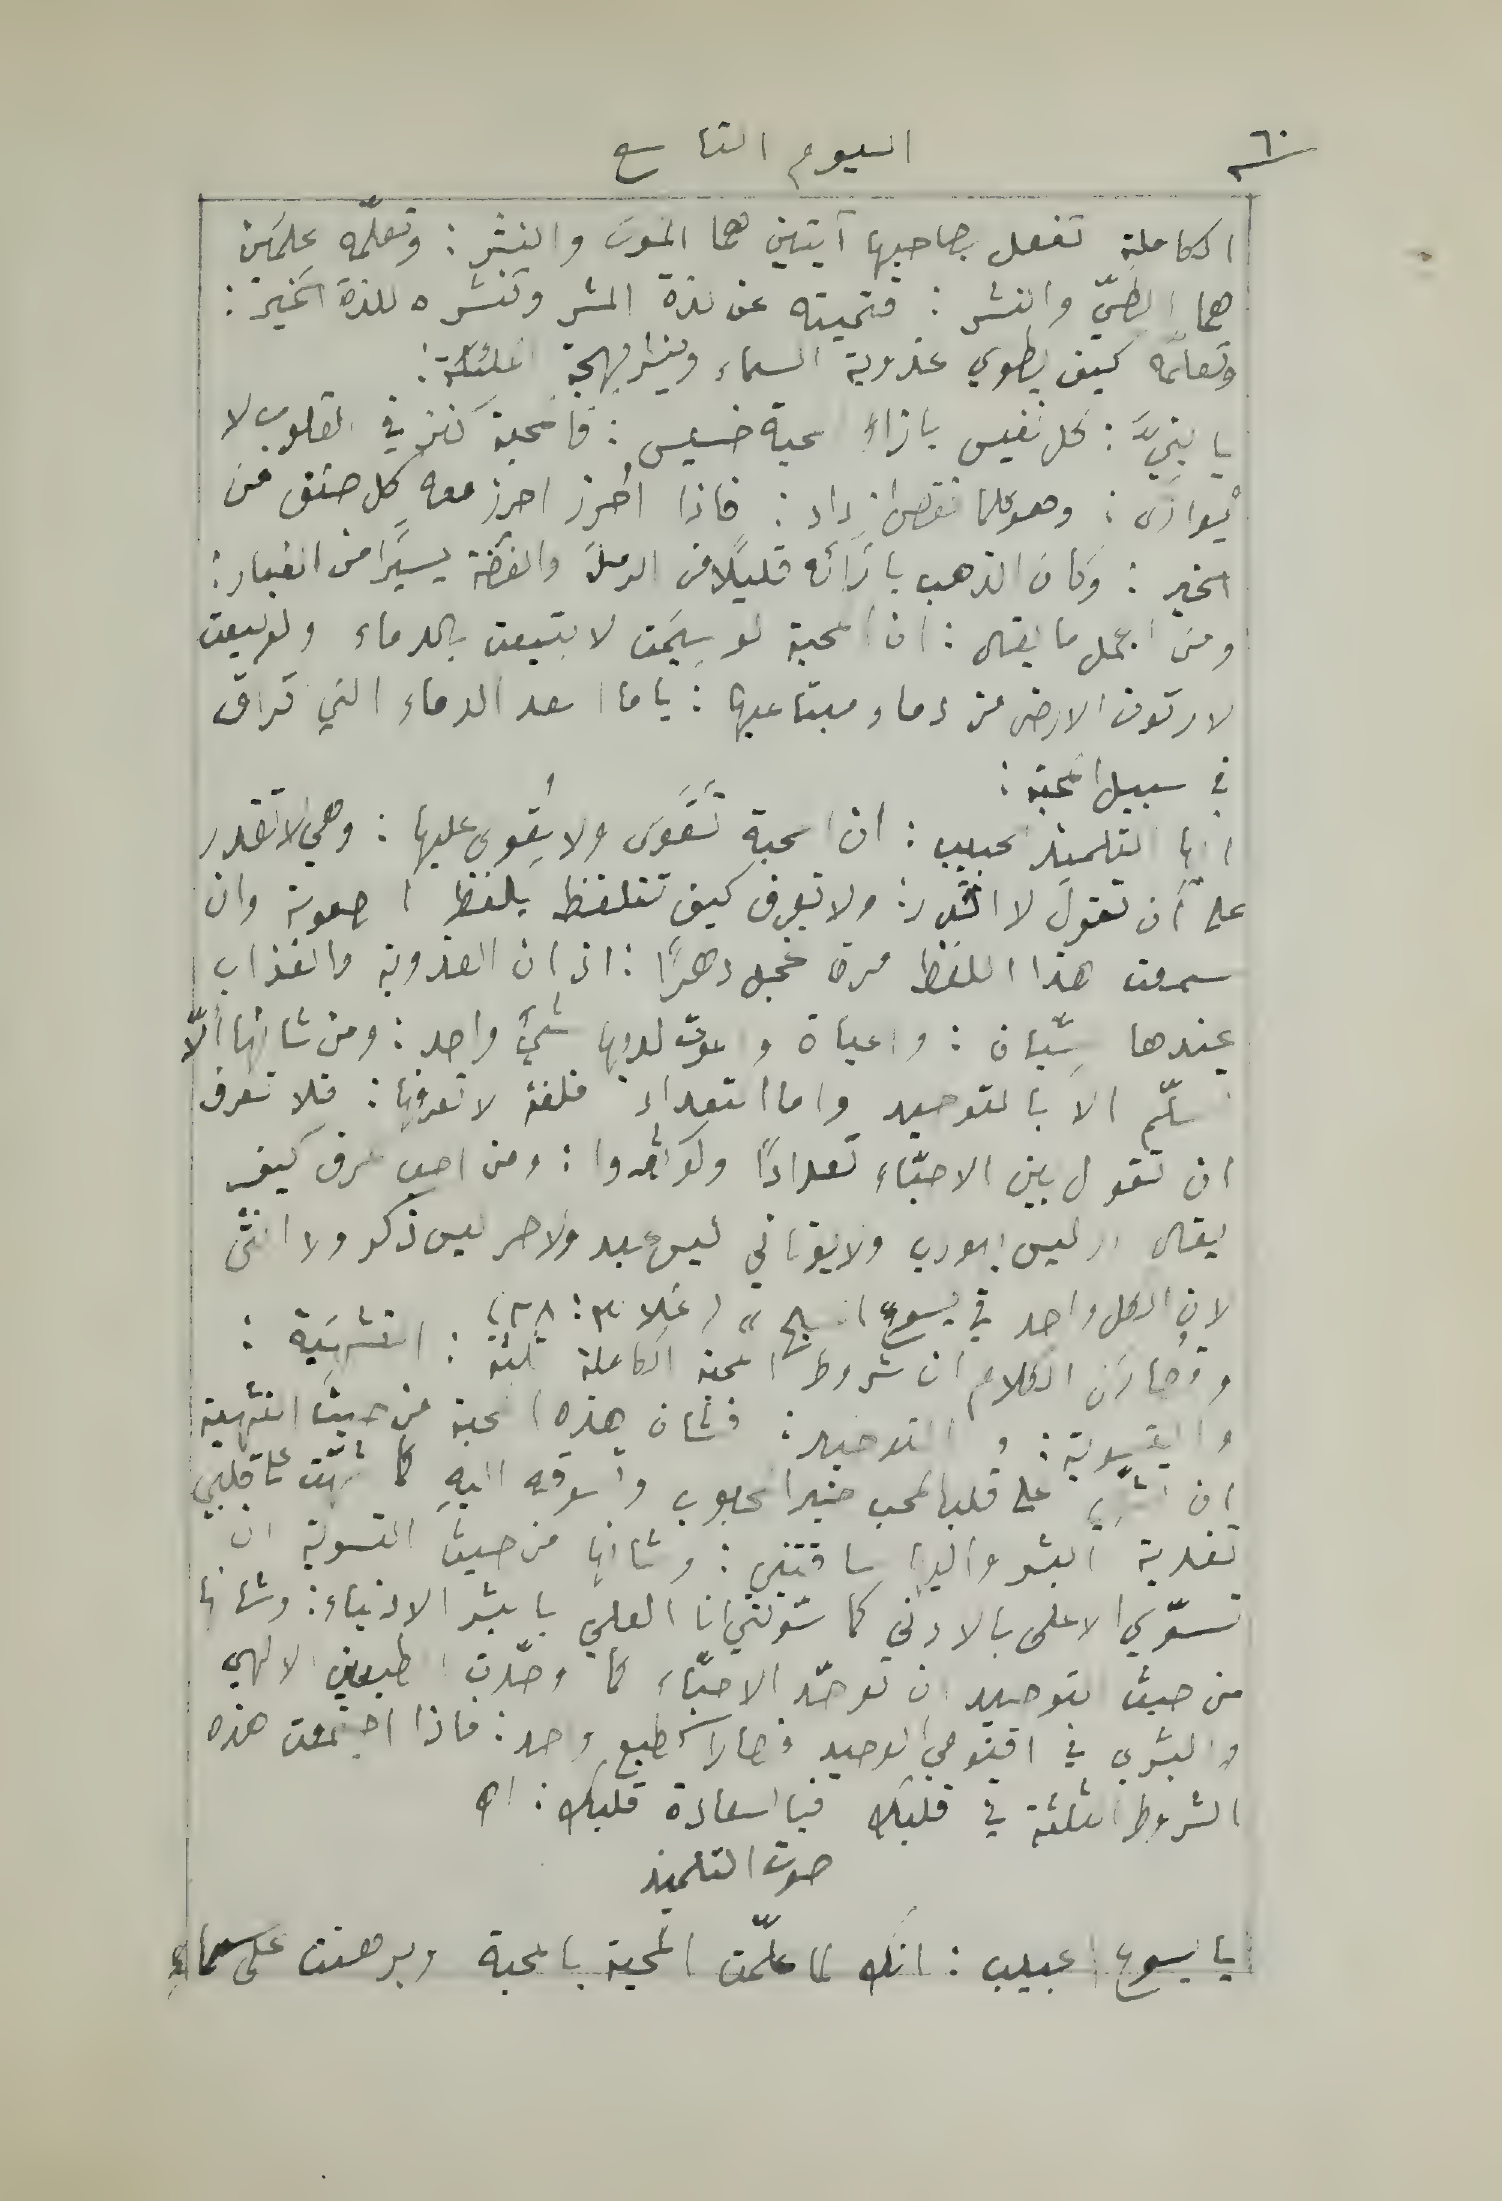 ٦٠
اليوم التاسع
الكاملة تفعل بصاحبها آيتين هما الموت والنشر : وتعلّمه علمَين
هما الطيّ والنشر : فتميته عن لذة الشر وتنشره للذة الخير :
وتعلّمه كيف يطوي عذوبة السماء وينشر بهجة
يا بنيَّ : كل نفيس بازاء المحبة خسيس : فالمحبة كنز في القلوب لا
يُوازى : وهو كلما نقص ازداد : فاذا اُحرز احرز معه كل صنف من
الخير : وكان الذهب بازائه قليلًا من الرمل والفضة يسيرًا من الغبار :
ومن اجمل ما يقال : ان المحبة لو سيمت لابتيعت بالدماء ولو بيعت
لارتوت الارض من دماء مبتاعيها : ياما اسعد الدماء التي تراق
في سبيل المحبة :
ايها التلميذ الحبيب : ان المحبة تَقوَى ولا يُقوى عليها : وهي لا تقدر
على أن تقول لا اقدر : ولا تعرف كيف تتلفظ بلفظ الصعوبة وان
سمعت هذا اللفظ مرة خجل دهرًا : اذ ان العذوبة والعذاب
عندها سِيّان : والحياة والموت لديها شيءٌ واحد : ومن شانها ألّا
تسلّم الا بالتوحيد واما التعداد فلغة لا تعرفها : فلا تعرف
ان تقول بين الاحبّاء تعدادًا ولو تعددوا : ومن احب عرف كيف
يقال " ليس يهودي ولا يوناني ليس عبد ولا حر ليس ذكر ولا انثى
لان الكل واحد في يسوع المسيح " ( غلا ٣ : ٢٨ )
وقصارَى الكلام ان شروط المحبة الكاملة ثلثة : التشهية :
والتسوية : والتوحيد : فشان هذه المحبة من حيث التشهية
ان على قلب المحب خير المحبوب وتسوقه اليه كما على قلبي
تفدية البشر واليها ساقتني : وشانها من حيث التسوية ان
تسوّي الاعلى بالادنى كما سَوّتني انا العلي بالبشر الادنياء : وشانها
من حيث التوحيد ان توحّد الاحبّاء كما وحّدت الطبعين الالهي
والبشري في اقنومي الوحيد فصارا كطبع واحد : فاذا اجتمعت هذه
الشروط الثلثة في قلبك فيا لسعادة قلبك : اه
صوت التلميذ
يا يسوع الحبيب : انك لما علّمت المحبة بالمحبة وبرهنت على